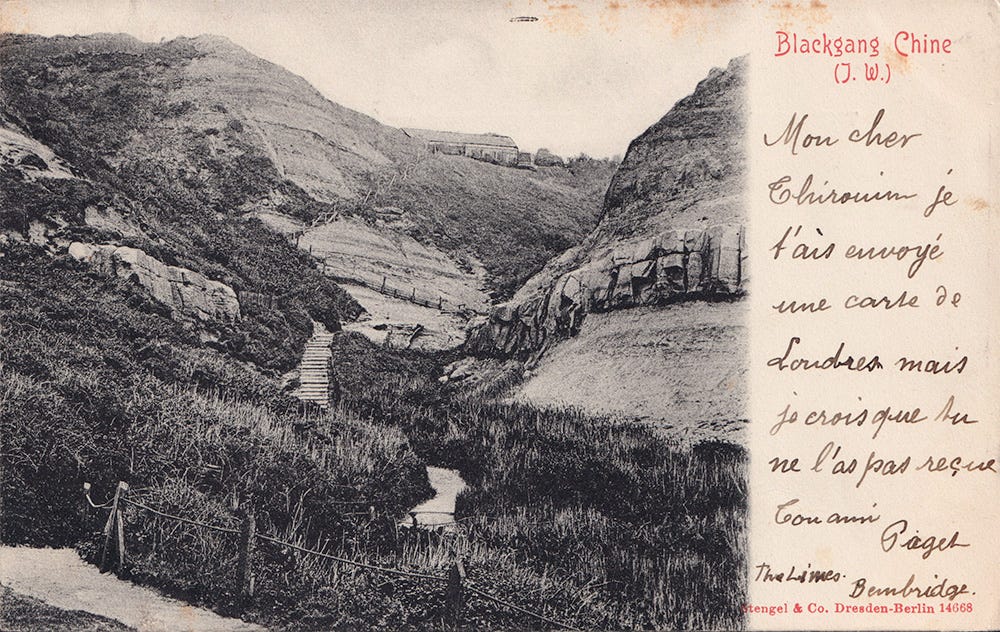 Blackgang Chine
(J. W.)
Mon cher
Thirouin je
t'ais envoyé
une carte de
Londres mais
je crois que tu
ne l'as pas reçue
Ton ami
Paget
The Limes.
Bembridge.
Stengel & Co. Dresden-Berlin 14668